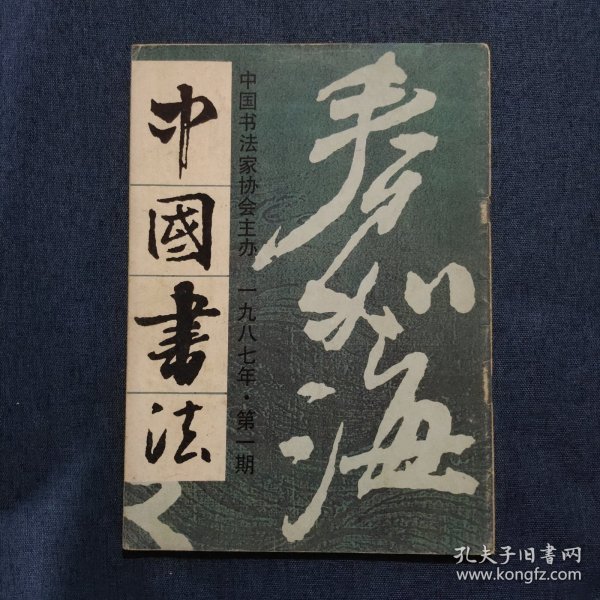 中國書法
中国书法家协会主办 一九八七年·第一期
春如海
孔夫子旧書网
www.kongfz.com